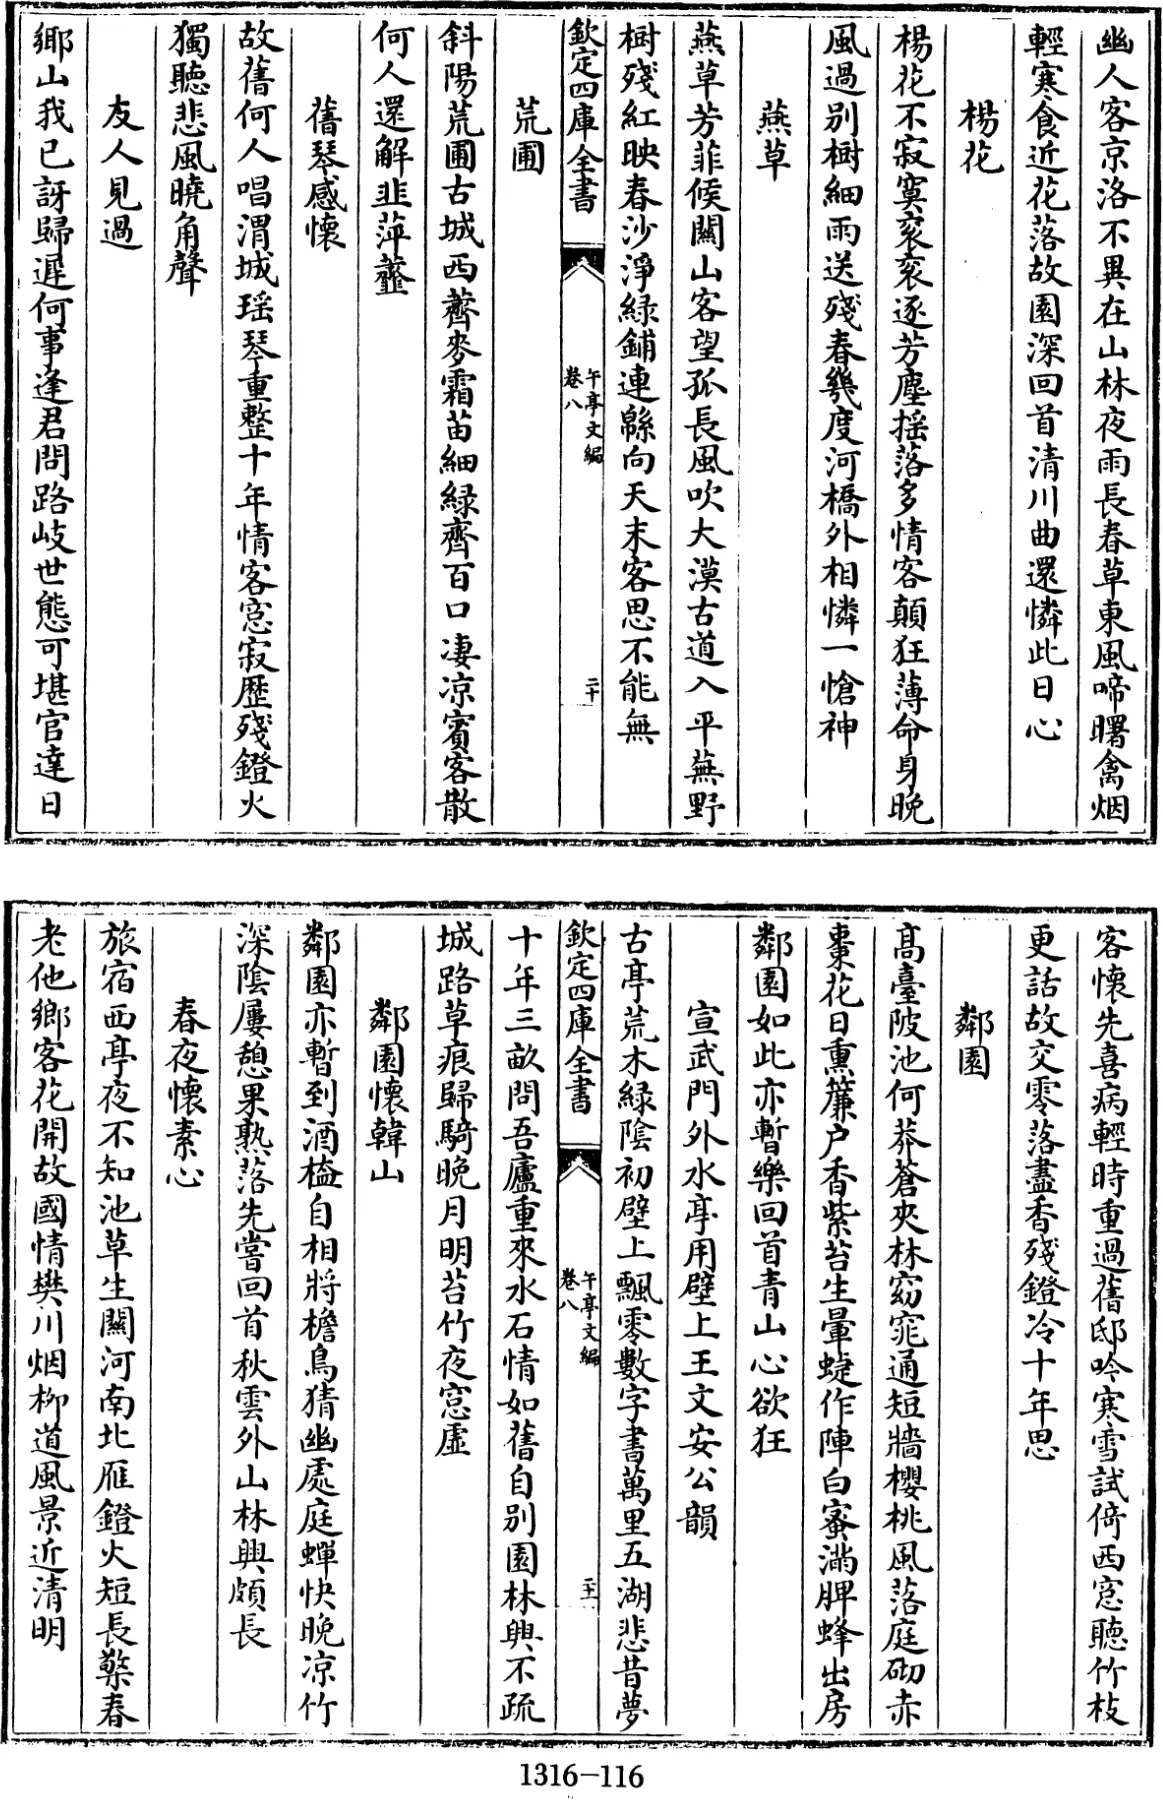 幽人客京洛不異在山林夜雨長春草東風啼曙禽烟
輕寒食近花落故園深回首清川曲還憐此日心
楊花
楊花不寂寞衮衮逐芳塵揺落多情客顛狂薄命身晚
風過别樹細雨送殘春幾度河橋外相憐一愴神
燕草
燕草芳菲候關山客望孤長風吹大漠古道入平蕪野
樹殘紅映春沙淨緑鋪連緜向天末客思不能無
欽定四庫全書
午亭文編
卷八
二十
荒圃
斜陽荒圃古城西薺麥霜苗細緑齊百口凄凉賓客散
何人還解韭萍虀
舊琴感懷
故舊何人唱渭城瑶琴重整十年情客窓寂歴殘鐙火
獨聽悲風曉角聲
友人見過
鄉山我已訝歸遲何事逢君問路岐世態可堪官達日
客懷先喜病輕時重過舊邸吟寒雪試倚西窓聽竹枝
更話故交零落盡香殘鐙冷十年思
鄰園
髙臺陂池何莽蒼夾林窈窕通短牆櫻桃風落庭砌赤
棗花日熏簾户香紫苔生暈蜨作陣白蜜滿脾蜂出房
鄰園如此亦暫樂回首青山心欲狂
宣武門外水亭用壁上王文安公韻
古亭荒木緑陰初壁上飄零數字書萬里五湖悲昔夢
欽定四庫全書
午亭文編
卷八
二十一
十年三畝問吾廬重來水石情如舊自别園林興不疏
城路草痕歸騎晚月明苔竹夜窓虚
鄰園懷韓山
鄰園亦暫到酒榼自相將檐鳥猜幽處庭蟬快晚凉竹
深陰屢憩果熟落先嘗回首秋雲外山林興頗長
春夜懷素心
旅宿西亭夜不知池草生關河南北雁鐙火短長檠春
老他鄉客花開故國情樊川烟柳道風景近清明
1316-116